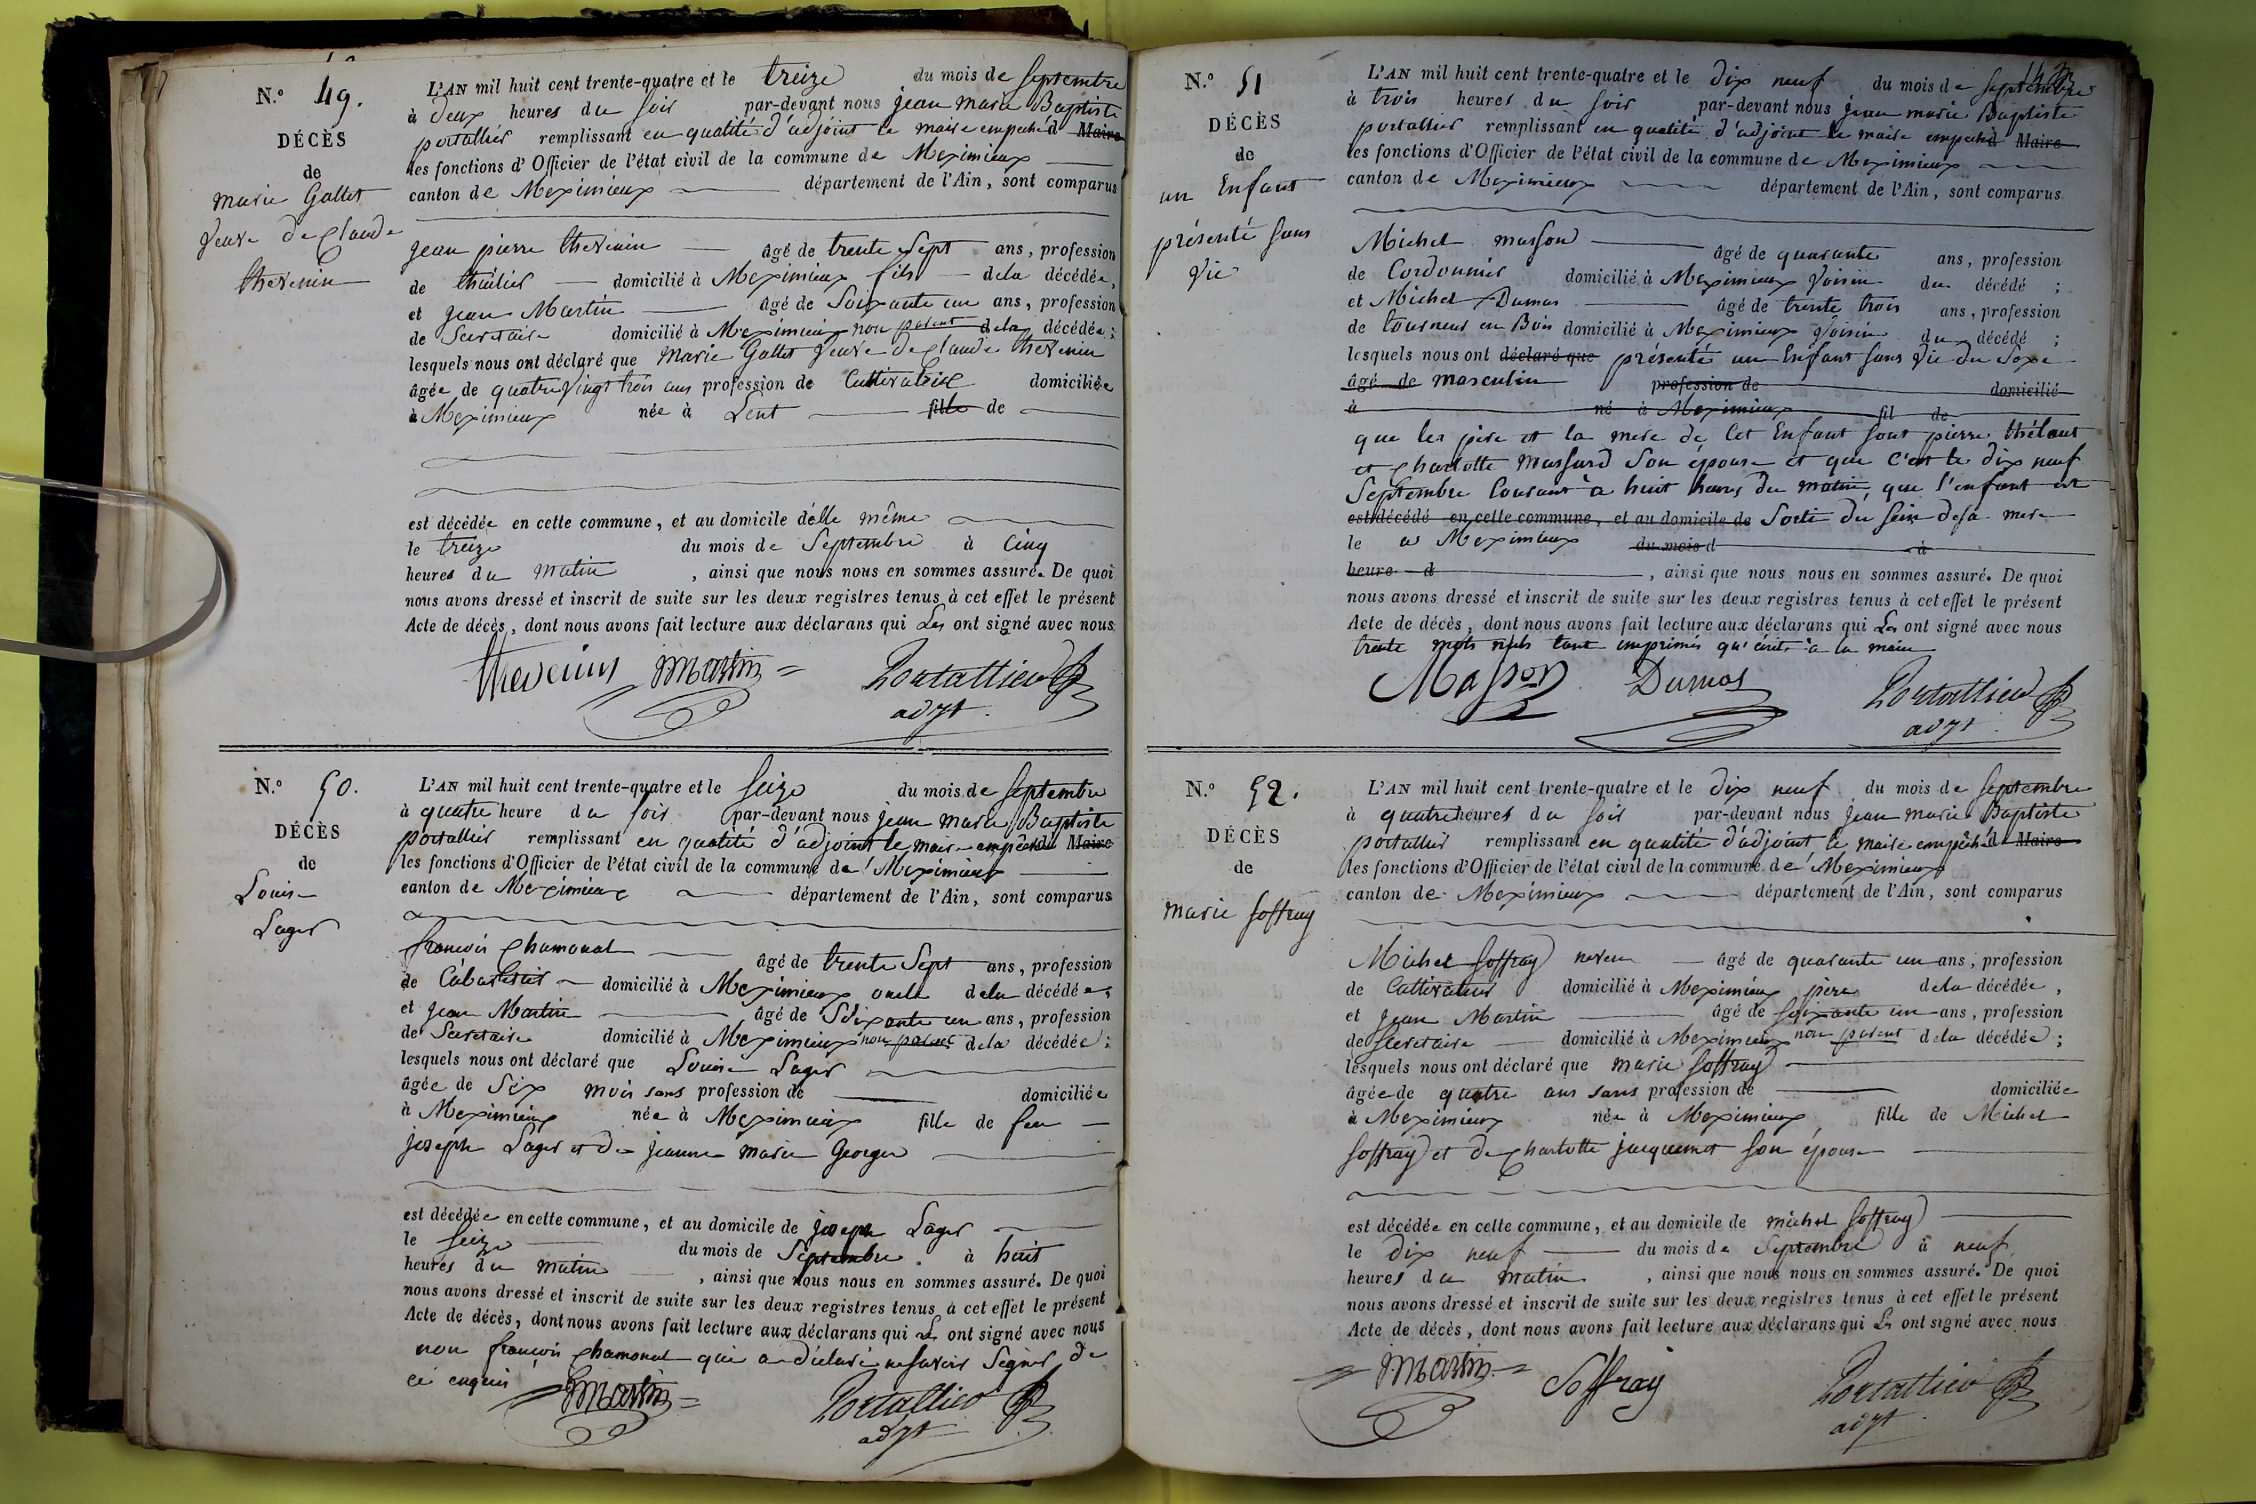 N.º 49.
DÉCÈS
de
marie Gallet
veuve de Claude
thevenin
L'AN mil huit cent trente-quatre et le treize du mois de septembre
à deux heures du soir par-devant nous jean marie Baptiste
portallier remplissant en qualité d'adjoint le maire empeché d Maire
les fonctions d'Officier de l'état civil de la commune de Meximieux
canton de Meximieux département de l'Ain, sont comparus
jean pierre thevenin âgé de trente sept ans, profession
de domicilié à Meximieux fils dela décédée,
et jean Martin âgé de Soixante un ans, profession
de Secretaire domicilié à Meximieux non parent dela décédée;
lesquels nous ont déclaré que Marie Gallet veuve de Claude thevenin
âgée de quatre vingt trois ans profession de Cultivatrice domiciliée
à Meximieux née à Lent fille de
est décédée en cette commune, et au domicile d'elle même
le treize du mois de Septembre à cinq
heures du matin, ainsi que nous nous en sommes assuré. De quoi
nous avons dressé et inscrit de suite sur les deux registres tenus à cet effet le présent
Acte de décès, dont nous avons fait lecture aux déclarans qui Les ont signé avec nous
thevenin Jmartin Portallier
adjt
N.º 50.
DÉCÈS
de
Louise
Lager
L'AN mil huit cent trente-quatre et le seize du mois de septembre
à quatre heure du soir par-devant nous jean marie Baptiste
portallier remplissant en qualité d'adjoint le maire empeché Maire
les fonctions d'Officier de l'état civil de la commune de Meximieux
canton de Meximieux département de l'Ain, sont comparus
françois Chamonal âgé de trente Sept ans, profession
de Cabaretier domicilié à Meximieux oncle dela décédée,
et jean Martin âgé de Soixante un ans, profession
de Secretaire domicilié à Meximieux non parent dela décédée;
lesquels nous ont déclaré que Louise Lager
âgée de Six mois sans profession de domiciliée
à Meximieux née à Meximieux fille de feu
joseph Lager et de jeanne marie Georger
est décédée en cette commune, et au domicile de joseph Lager
le seize du mois de Septembre à huit
heures du matin, ainsi que nous nous en sommes assuré. De quoi
nous avons dressé et inscrit de suite sur les deux registres tenus à cet effet le présent
Acte de décès, dont nous avons fait lecture aux déclarans qui Les ont signé avec nous
non françois Chamonal qui a déclaré ne savoir Signer de
ce enquis
Jmartin Portallier
adjt
N.º 51
DÉCÈS
de
un Enfant
présenté sans
vie
L'AN mil huit cent trente-quatre et le dix neuf du mois de septembre
à trois heures du soir par-devant nous jean marie Baptiste
portallier remplissant en qualité d'adjoint le maire empeché Maire
les fonctions d'Officier de l'état civil de la commune de Meximieux
canton de Meximieux département de l'Ain, sont comparus
Michel masson âgé de quarante ans, profession
de Cordonnier domicilié à Meximieux voisin du décédé;
et Michel Dumas âgé de trente trois ans, profession
de tourneur en Bois domicilié à Meximieux voisin du décédé;
lesquels nous ont déclaré que présenté un Enfant sans vie du Sexe
âgé de masculin profession de domicilié
à né à Meximieux fil de
que les père et la mere de Cet Enfant sont pierre
et Charlotte Massard Son épouse et que c'est le dix neuf
Septembre Courant à huit heures du matin, que l'enfant est
est décédé en cette commune, et au domicile de Sorti du sein de sa mere
le a Meximieux du mois d à
heure d, ainsi que nous nous en sommes assuré. De quoi
nous avons dressé et inscrit de suite sur les deux registres tenus à cet effet le présent
Acte de décès, dont nous avons fait lecture aux déclarans qui Les ont signé avec nous
trente mots nuls tant imprimés qu'écrits à la main
Masson Dumas Portallier
adjt
N.º 52.
DÉCÈS
de
marie Soffray
L'AN mil huit cent trente-quatre et le dix neuf du mois de septembre
à quatre heures du soir par-devant nous jean marie Baptiste
portallier remplissant en qualité d'adjoint le maire empêché Maire
les fonctions d'Officier de l'état civil de la commune de Meximieux
canton de Meximieux département de l'Ain, sont comparus
Michel Soffray neveu âgé de quarante un ans, profession
de Cultivateur domicilié à Meximieux père dela décédée,
et jean Martin âgé de soixante un ans, profession
de Secretaire domicilié à Meximieux non parent dela décédée;
lesquels nous ont déclaré que marie Soffray
âgée de quatre ans sans profession de domiciliée
à Meximieux née à Meximieux fille de Michel
Soffray et de Charlotte jacquemet son épouse
est décédée en cette commune, et au domicile de michel Soffray
le dix neuf du mois de Septembre à neuf
heures du matin, ainsi que nous nous en sommes assuré. De quoi
nous avons dressé et inscrit de suite sur les deux registres tenus à cet effet le présent
Acte de décès, dont nous avons fait lecture aux déclarans qui Les ont signé avec nous
Jmartin Soffray Portallier
adjt